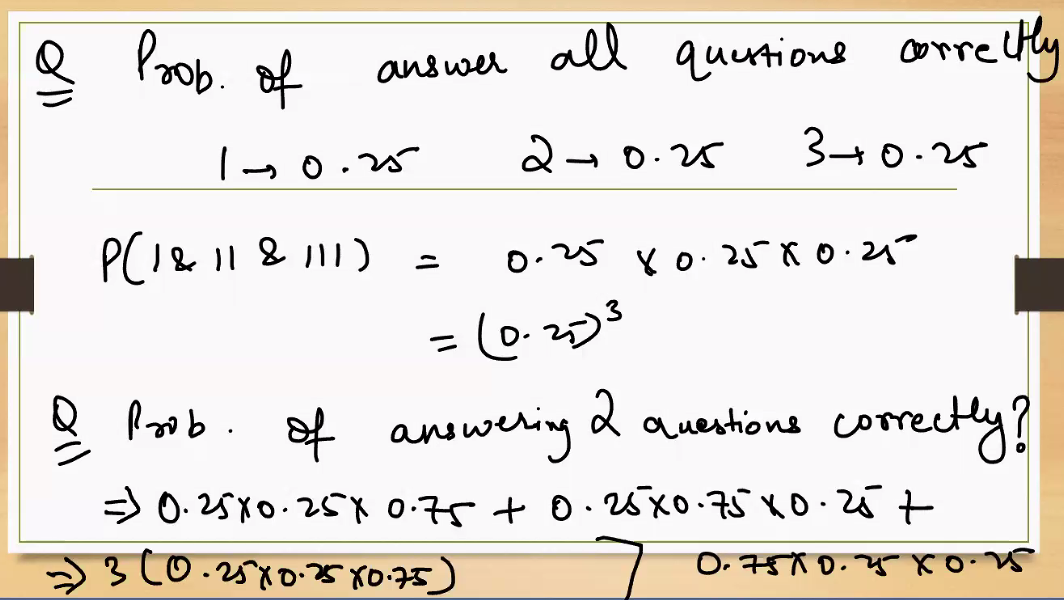 Q Prob. of answer all questions correctly
1 → 0.25 2 → 0.25 3 → 0.25
P(I & II & III) = 0.25 x 0.25 x 0.25
= (0.25)³
Q Prob. of answering 2 questions correctly?
⇒ 0.25x0.25x 0.75 + 0.25x0.75x0.25 +
0.75x0.25x0.25
⇒ 3 (0.25x0.25x0.75)